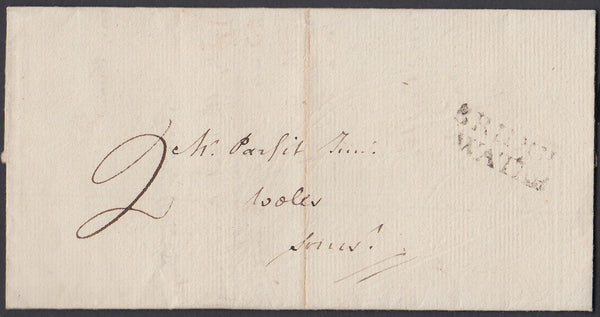 BRIDG
WATER
2 Mr. Parfit Junr.
Wells
Somst.